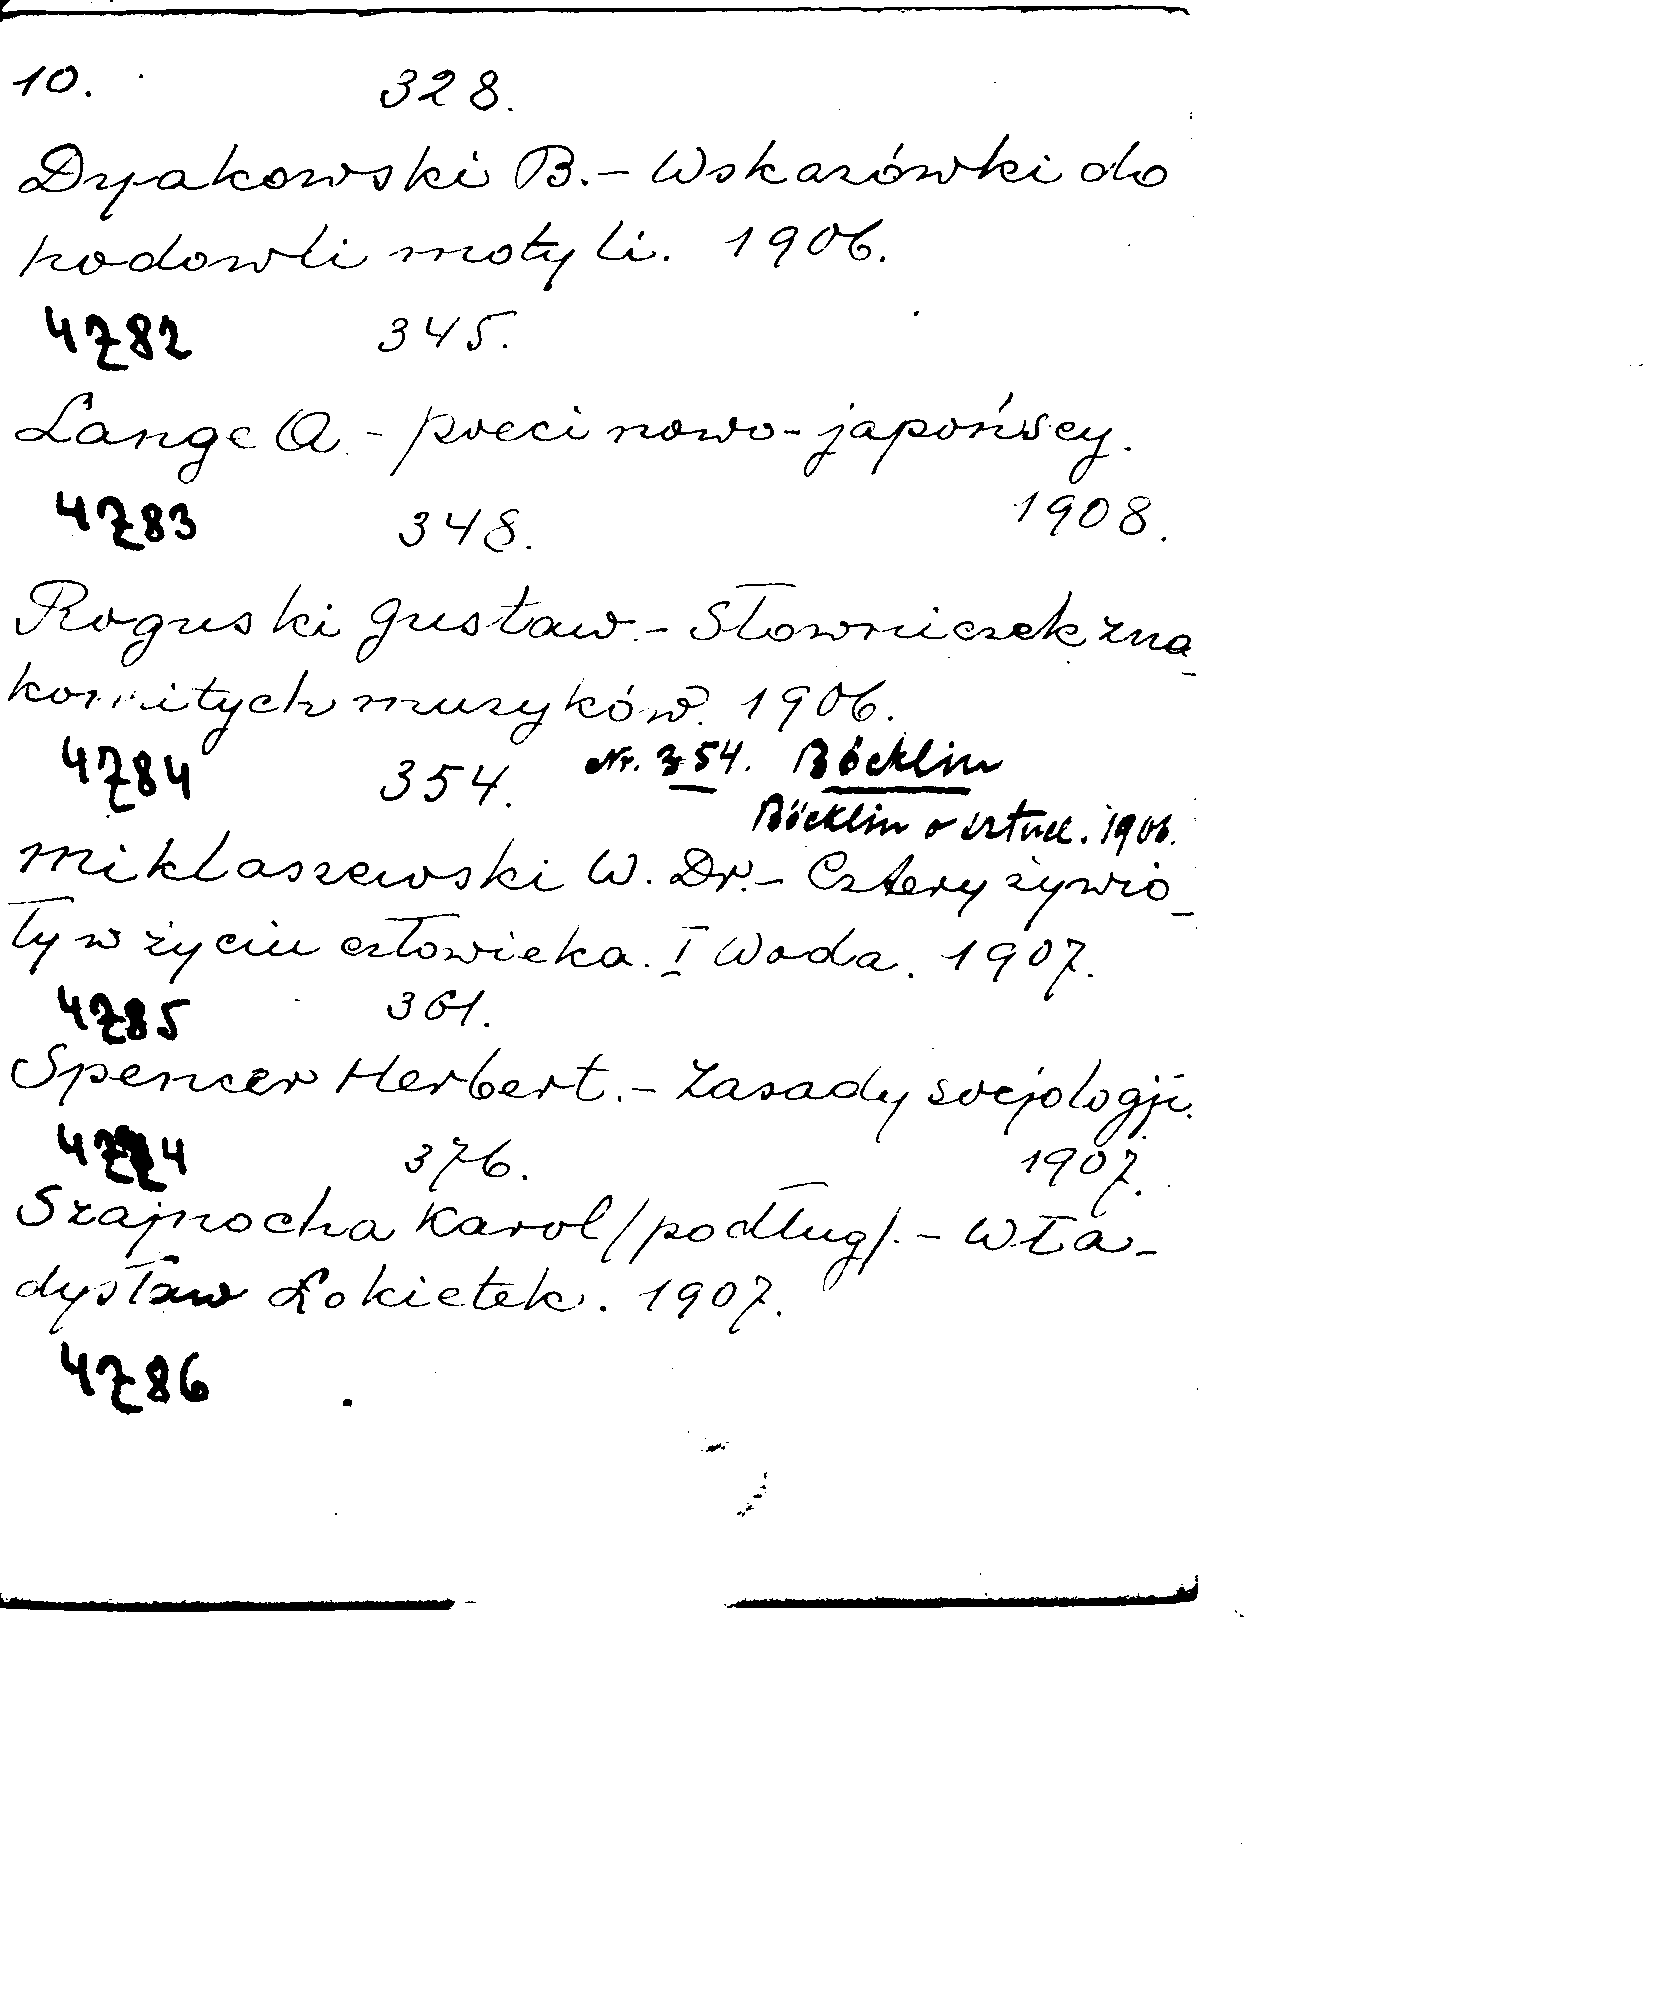 10. 328.
Dyakowski B. - Wskazówki do
hodowli motyli. 1906.
4782 345.
Lange A. - poeci nowo-japońscy.
4783 348. 1908.
Roguski Gustaw. - Słowniczek zna-
komitych muzyków. 1906.
4784 354. Nr. 354. Böcklin
Böcklin o sztuce. 1906.
Miklaszewski W. Dr. - Cztery żywio-
ły w życiu człowieka. I Woda. 1907.
4785 361.
Spencer Herbert. - Zasady socjologji.
376. 1907.
Szajnocha Karol /podług/. - Wła-
dysław Łokietek. 1907.
4786